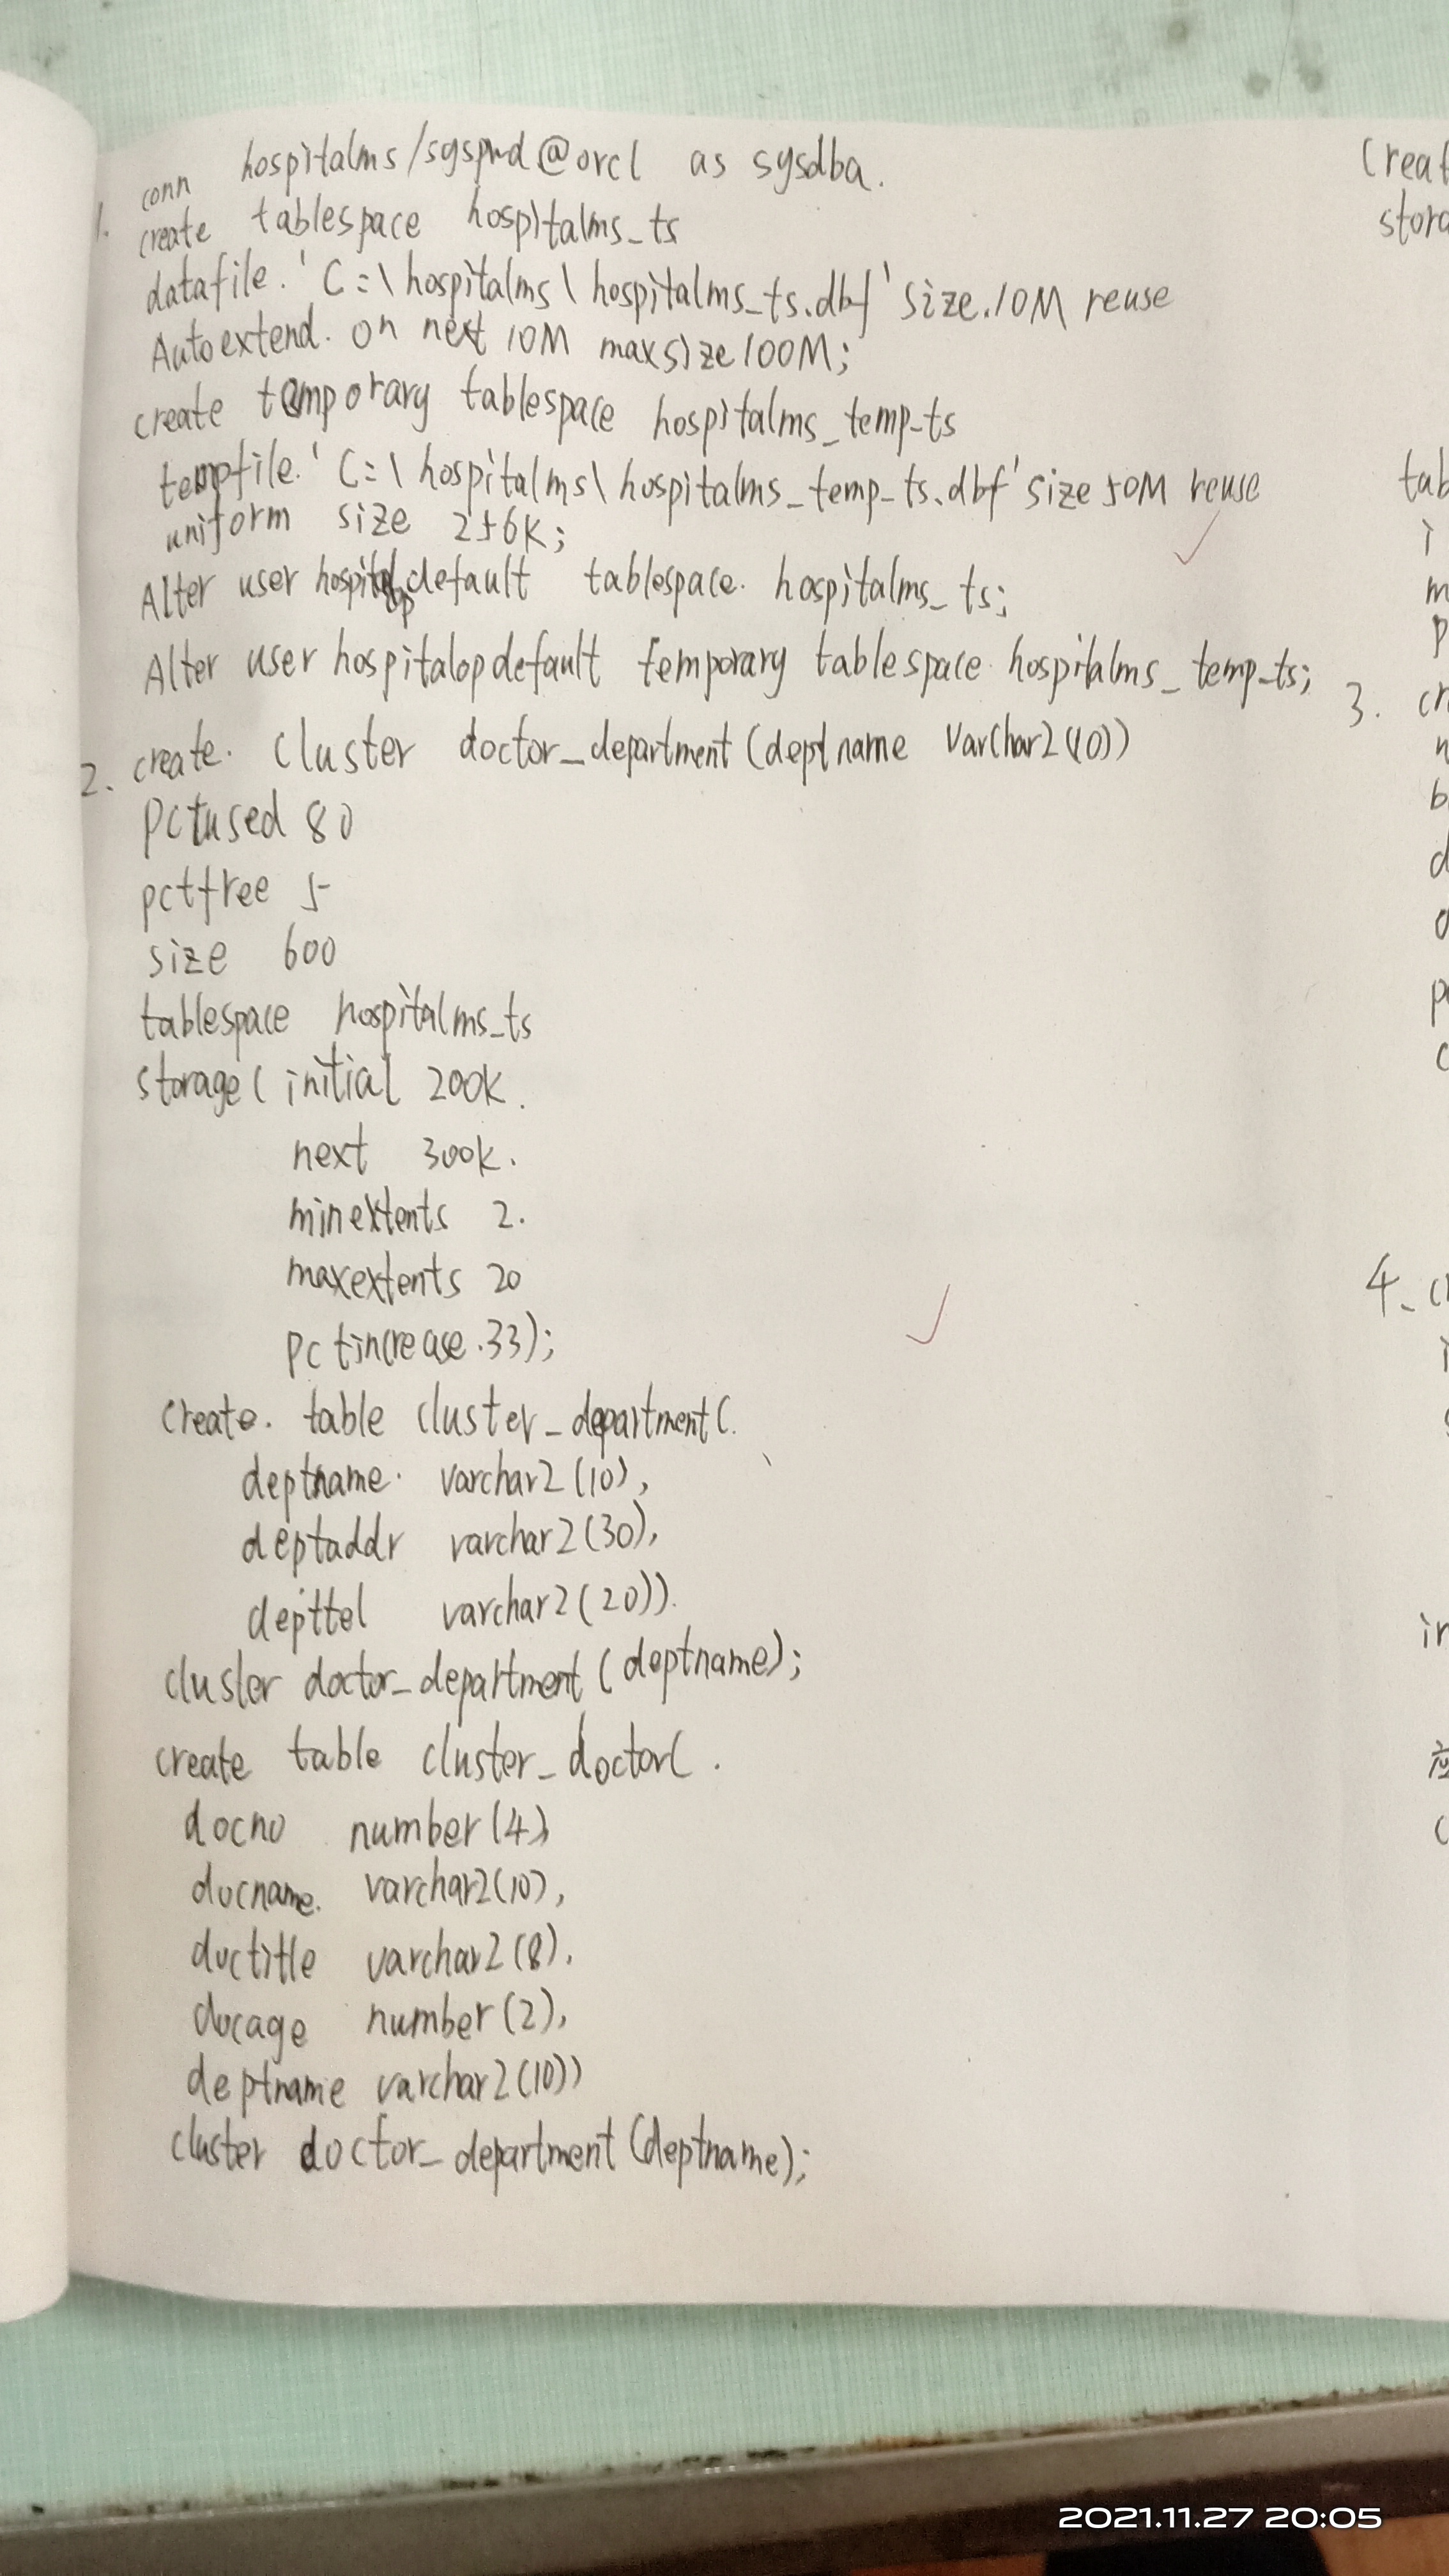 conn hospitalms/syspwd@orcl as sysdba.
1. create tablespace hospitalms_ts
datafile. 'C:\hospitalms\hospitalms_ts.dbf' size.10M reuse
Autoextend. on next 10M maxsize 100M;
create temporary tablespace hospitalms_temp_ts
tempfile. 'C:\hospitalms\hospitalms_temp_ts.dbf' size 50M reuse
uniform size 256K;
Alter user hospitalop default tablespace. hospitalms_ts;
Alter user hospitalop default temporary tablespace hospitalms_temp_ts;
2. create. cluster doctor_department (deptname varchar2(10))
pctused 80
pctfree 5
size 600
tablespace hospitalms_ts
storage( initial 200K.
next 300K.
minextents 2.
maxextents 20
pctincrease.33);
create. table cluster_department(.
deptname. varchar2(10),
deptaddr varchar2(30),
depttel varchar2(20)).
cluster doctor_department (deptname);
create table cluster_doctor( .
docno number(4),
docname. varchar2(10),
doctitle varchar2(8),
docage number(2),
deptname varchar2(10))
cluster doctor_department (deptname);
Creat
stora
tab
i
m
p
3. cr
n
b
d
o
p
c
4. cr
i
s
in
应
c
2021.11.27 20:05